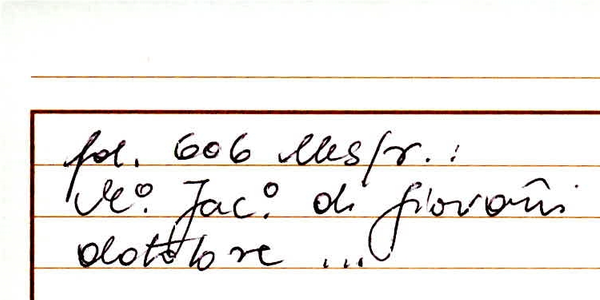 fol. 606 Mess/r. :
Mº. Jacº. di Giovañi
dottore ...